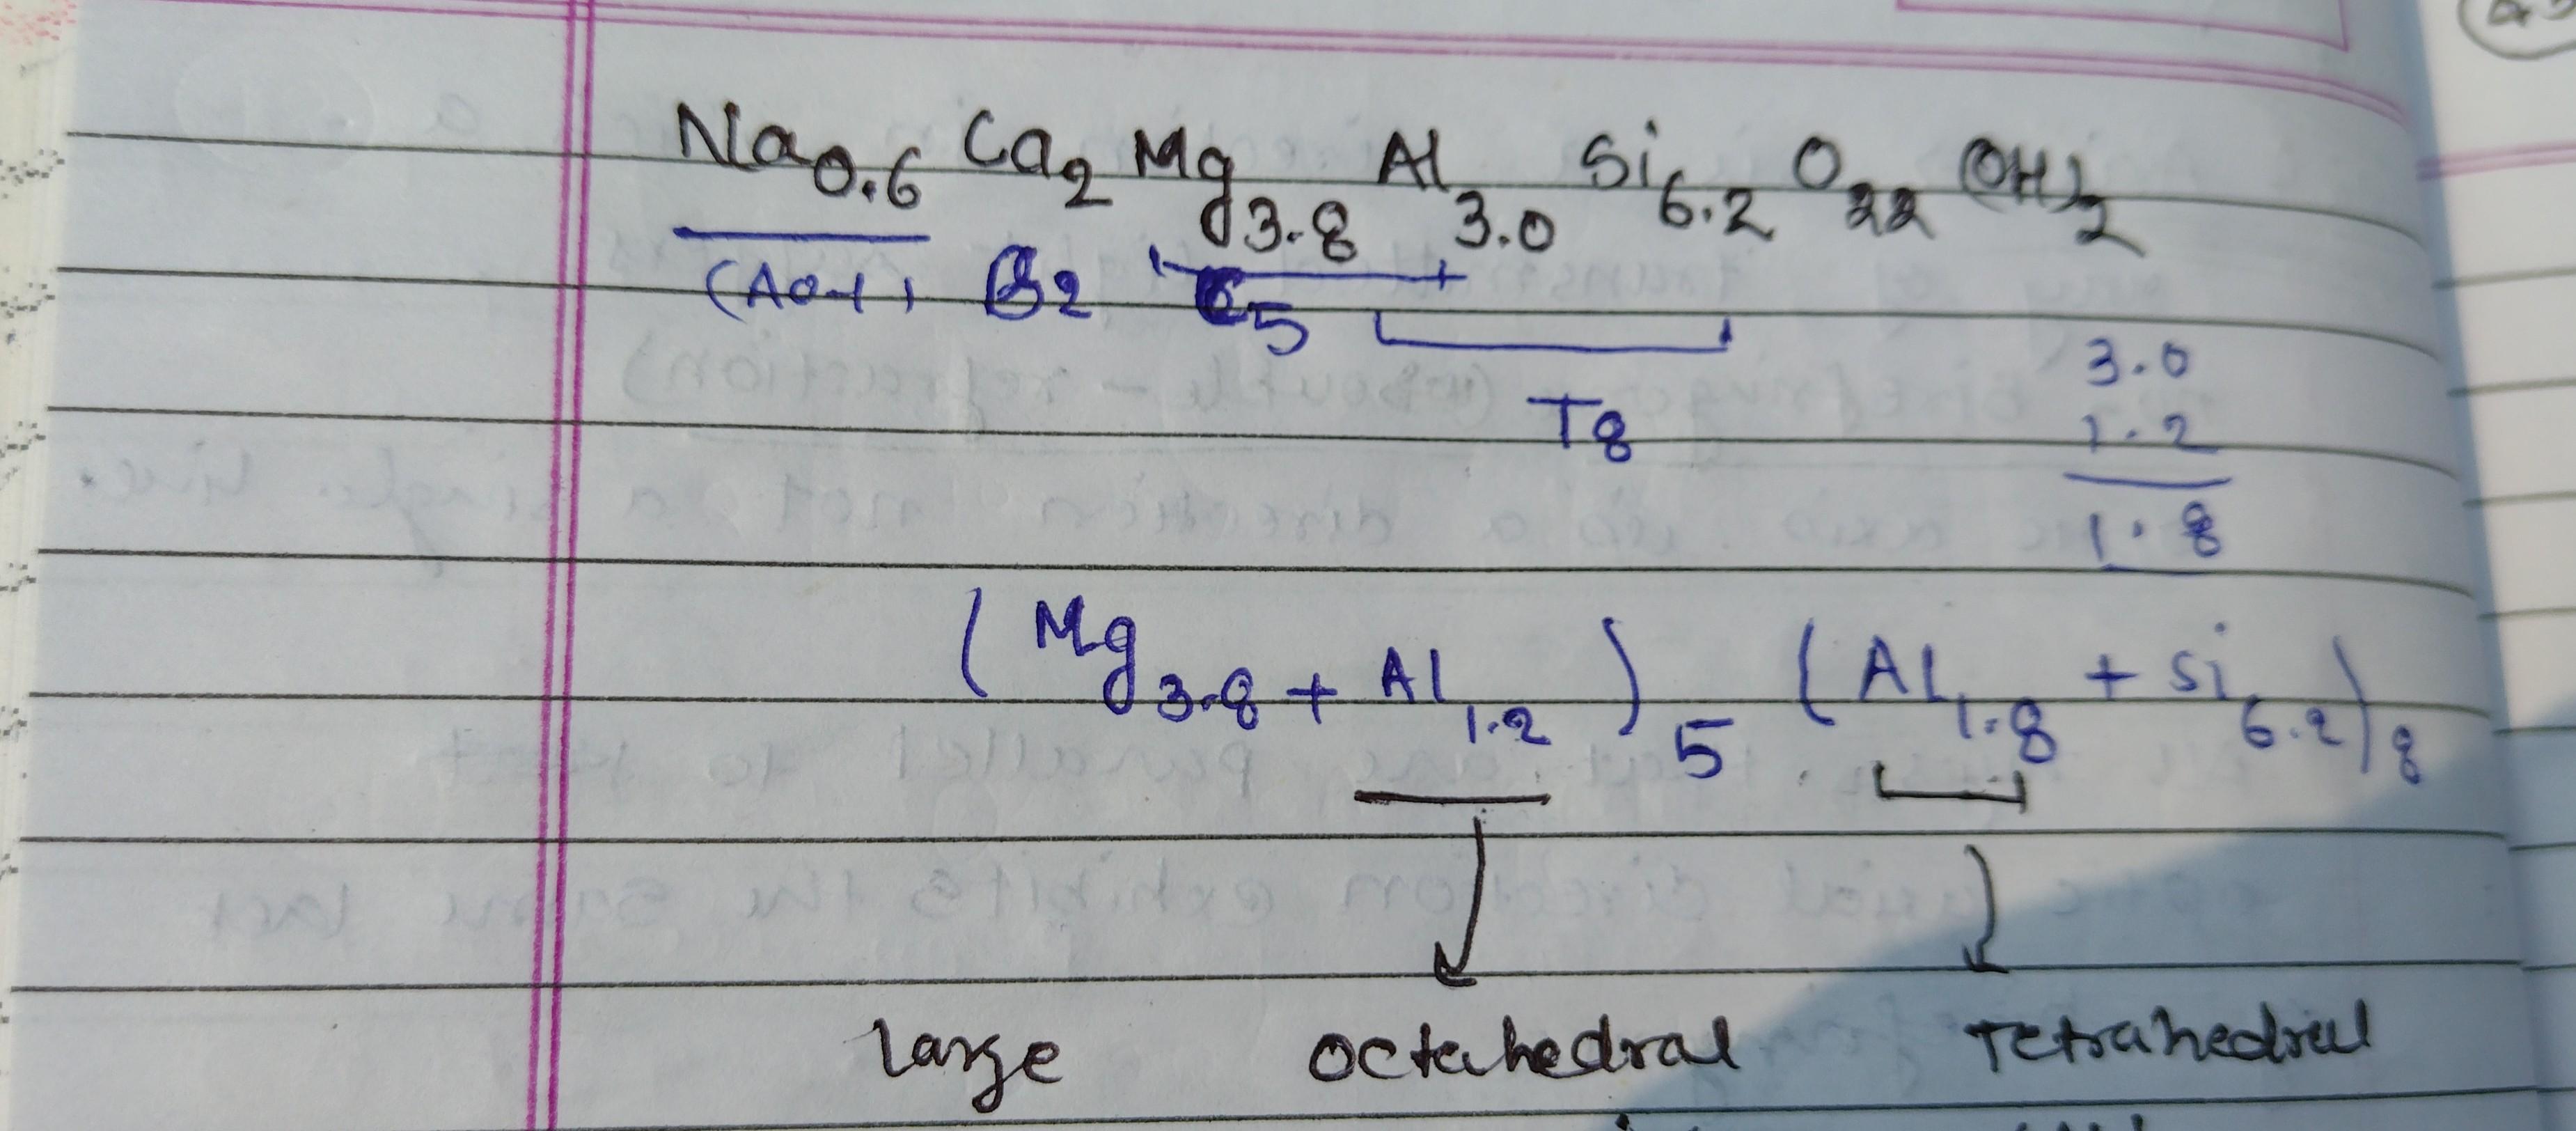 Na0.6 Ca2 Mg3.8 Al3.0 Si6.2 O22 (OH)2
(A0-1) B2 C5
T8
3.0
1.2
1.8
(Mg3.8 + Al1.2)5 (Al1.8 + Si6.2)8
large octahedral Tetrahedral